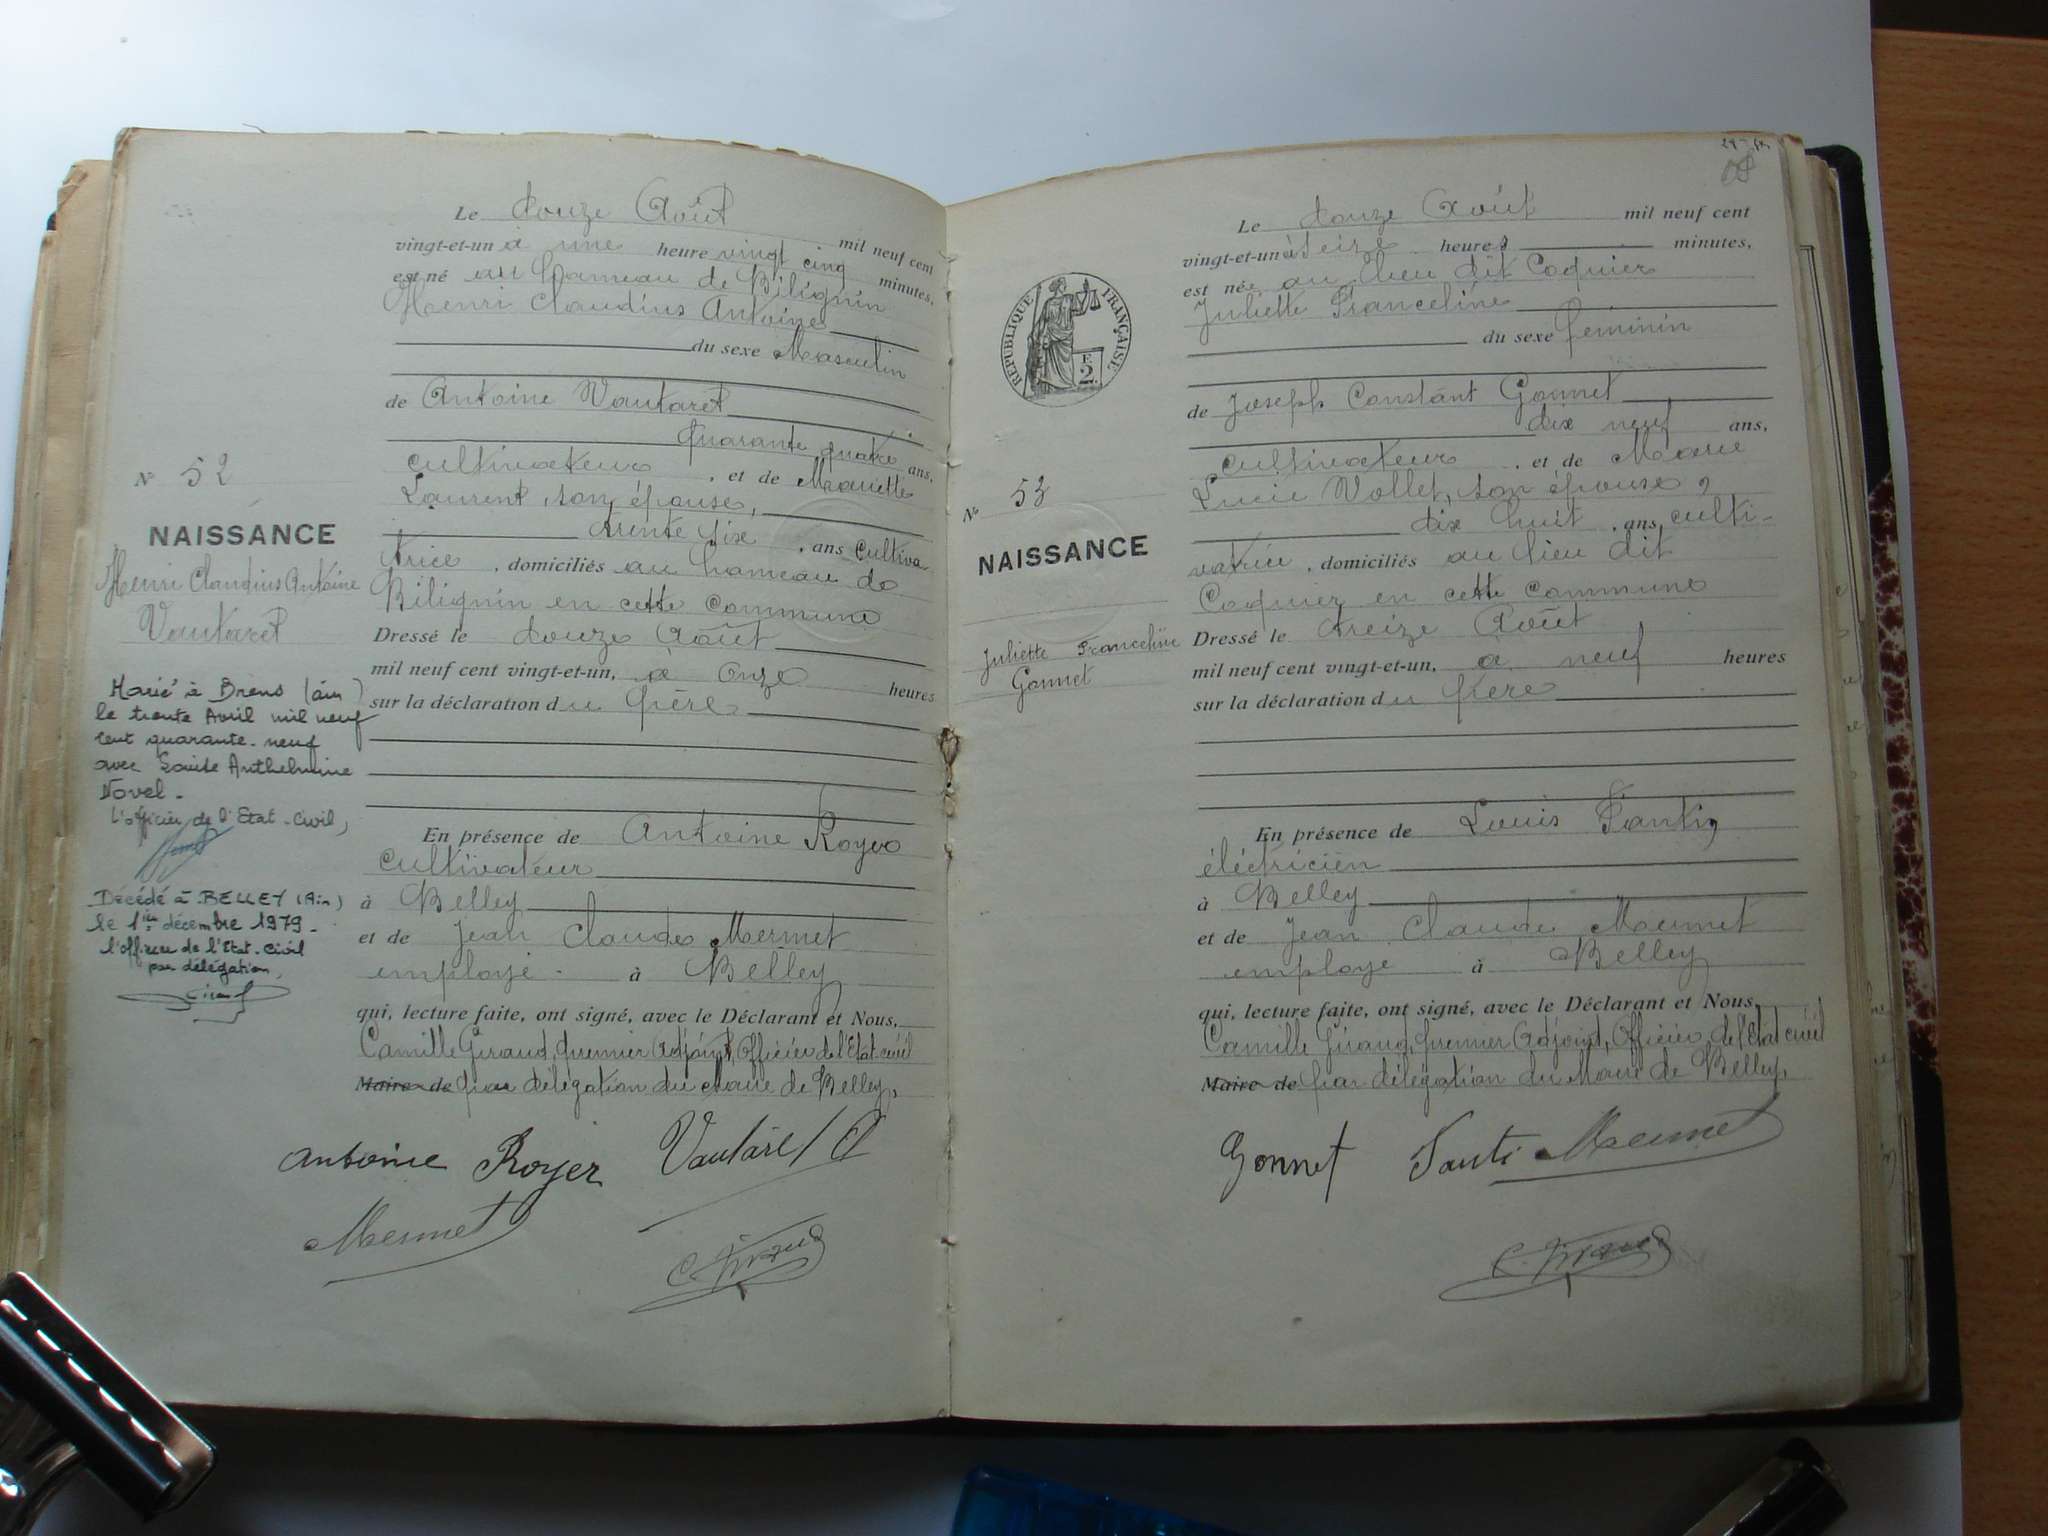 Le douze Août mil neuf cent
vingt-et-un à une heure vingt cinq minutes,
est né au hameau de Bilignin
Henri Claudius Antoine
du sexe Masculin
de Antoine Vautaret
quarante quatre ans,
cultivateur , et de Mariette
Laurent, son épouse,
trente six , ans cultiva-
trice , domiciliés au hameau de
Bilignin en cette commune
Dressé le douze Août
mil neuf cent vingt-et-un, à onze heures
sur la déclaration du père
En présence de Antoine Royer
cultivateur
à Belley
et de Jean Claude Mermet
employé à Belley
qui, lecture faite, ont signé, avec le Déclarant et Nous,
Camille Giraud, premier Adjoint, Officier de l'Etat civil
Maire de par délégation du Maire de Belley,
Antoine Royer Vautaret
Mermet
C. Giraud
N° 52
NAISSANCE
Henri Claudius Antoine
Vautaret
Marié à Brens (Ain)
le trente Avril mil neuf
cent quarante-neuf
avec Louise Anthelmine
Novel -
L'officier de l'Etat-Civil,
Décédé à BELLEY (Ain)
le 1er décembre 1979 -
l'officier de l'Etat-Civil
par délégation,
Le douze Août mil neuf cent
vingt-et-un à seize heures minutes,
est née au lieu dit Coquier
Juliette Franceline
du sexe féminin
de Joseph Constant Gonnet
dix neuf ans,
cultivateur , et de Marie
Lucie Vollet, son épouse,
dix huit , ans, culti-
vatrice , domiciliés au lieu dit
Coquier en cette commune
Dressé le treize Août
mil neuf cent vingt-et-un, à neuf heures
sur la déclaration du père
En présence de Louis
électricien
à Belley
et de Jean Claude Mermet
employé à Belley
qui, lecture faite, ont signé, avec le Déclarant et Nous,
Camille Giraud, premier Adjoint, Officier de l'Etat civil
Maire de par délégation du Maire de Belley,
Gonnet Mermet
C. Giraud
RÉPUBLIQUE FRANÇAISE
E
2
N° 53
NAISSANCE
Juliette Franceline
Gonnet